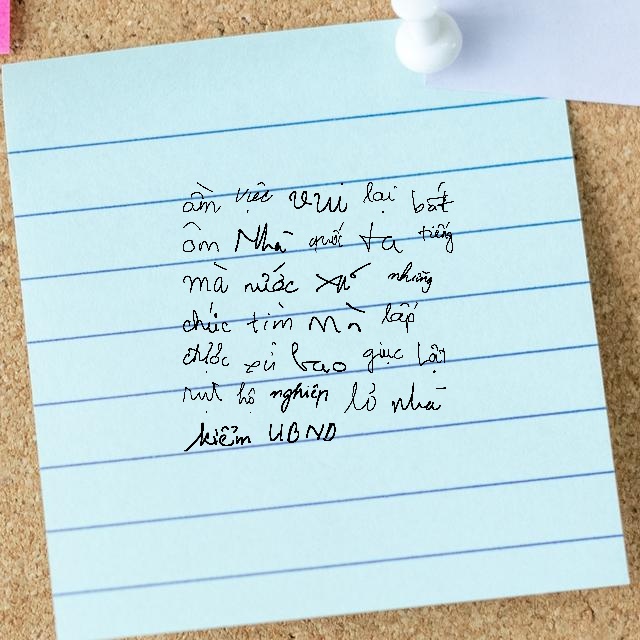 ầm việc vui lại bắt
ôm Nhà quốc ta tiếng
mà nước xử những
chức tìm Mà lấp
được xử bao giục lật
rụt hộ nghiệp lở nhà
kiểm UBND